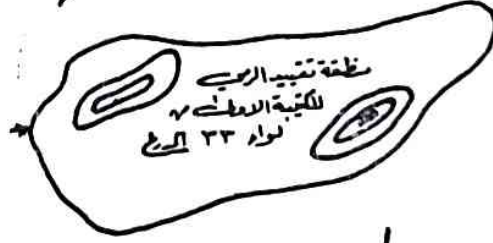 منطقة تقييد الرمي
للكتيبة الاولى من
لواء ٣٣ المدرع